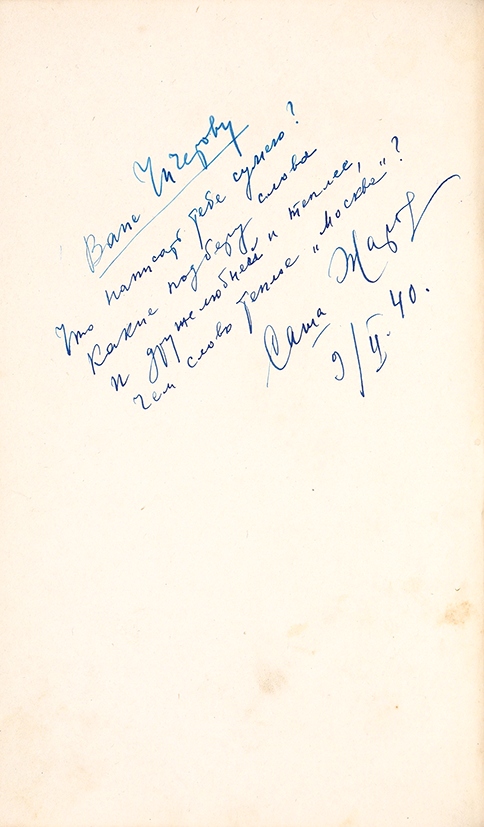 Ване Чичерову
Что написать тебе сумею?
Какие подберу слова
И дружелюбней и теплее,
Чем слово теплое "Москва"?
Саша Жаров
9/II. 40.